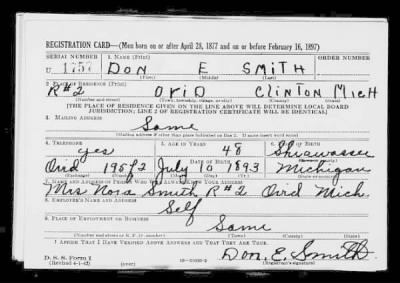 REGISTRATION CARD—(Men born on or after April 28, 1877 and on or before February 16, 1897)
SERIAL NUMBER 1. NAME (Print) ORDER NUMBER
U 1757 DON E SMITH
(First) (Middle) (Last)
2. PLACE OF RESIDENCE (Print)
R#2 OVID CLINTON MICH
(Number and street) (Town, township, village, or city) (County) (State)
[THE PLACE OF RESIDENCE GIVEN ON THE LINE ABOVE WILL DETERMINE LOCAL BOARD
JURISDICTION; LINE 2 OF REGISTRATION CERTIFICATE WILL BE IDENTICAL]
3. MAILING ADDRESS
Same
(Mailing address if other than place indicated on line 2. If same insert word same)
4. TELEPHONE 5. AGE IN YEARS 6. PLACE OF BIRTH
yes 48 Shiawassee
DATE OF BIRTH
Ovid 195F2 July 10 1893 Michigan
(Exchange) (Number) (Mo.) (Day) (Yr.) (State or country)
7. NAME AND ADDRESS OF PERSON WHO WILL ALWAYS KNOW YOUR ADDRESS
Mrs Nora Smith R#2 Ovid Mich.
8. EMPLOYER'S NAME AND ADDRESS
Self
9. PLACE OF EMPLOYMENT OR BUSINESS
Same
(Number and street or R. F. D. number) (Town) (County) (State)
I AFFIRM THAT I HAVE VERIFIED ABOVE ANSWERS AND THAT THEY ARE TRUE.
D. S. S. Form 1
(Revised 4-1-42) (over) Don. E. Smith
(Registrant's signature)